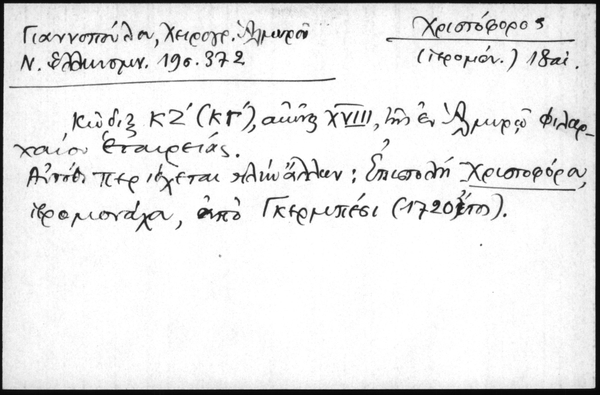 Γιαννοπούλου, Χειρογρ. Ἁλμυροῦ
Χριστόφορος
Ν. Ἑλληνομν. 19σ. 372
(ἱερομόν.) 18 αἰ.
Κῶδιξ ΚΖ΄ (ΚΓ΄), αἰῶνος XVIII, τῆς ἐν Ἁλμυρῷ Φιλαρ-
χαίου Ἑταιρείας.
Αὐτόθι περιέχεται πλὴν ἄλλων: Ἐπιστολὴ Χριστοφόρου,
ἱερομονάχου, ἀπὸ Γκερμπέσι (1720 ἔτος).